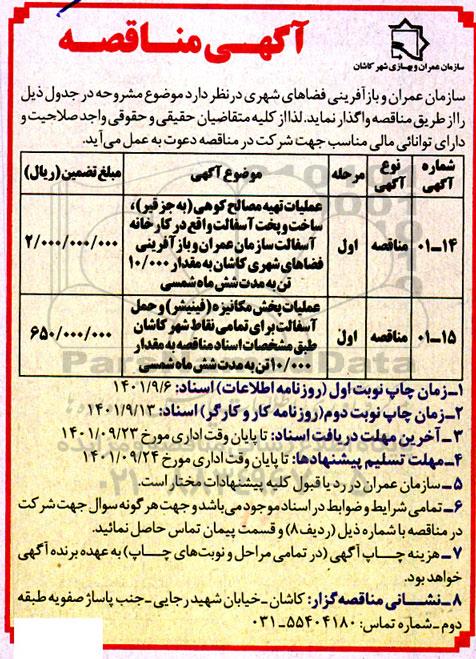 آگهـی منـاقصـه
سازمان عمران و بهسازی شهر کاشان
سازمان عمران و بازآفرینی فضاهای شهری درنظر دارد موضوع مشروحه در جدول ذیل
را از طریق مناقصه واگذار نماید. لذا از کلیه متقاضیان حقیقی و حقوقی واجد صلاحیت و
دارای توانائی مالی مناسب جهت شرکت در مناقصه دعوت به عمل می‌آید.
شماره آگهی | نوع آگهی | مرحله | موضوع آگهی | مبلغ تضمین (ریال)
۱۴-۰۱ | مناقصه | اول | عملیات تهیه مصالح کوهی (به جز قیر)، | ۲/۰۰۰/۰۰۰/۰۰۰
ساخت و پخت آسفالت واقع در کارخانه
آسفالت سازمان عمران و بازآفرینی
فضاهای شهری کاشان به مقدار ۱۰/۰۰۰
تن به مدت شش ماه شمسی
۱۵-۰۱ | مناقصه | اول | عملیات پخش مکانیزه (فینیشر) و حمل | ۶۵۰/۰۰۰/۰۰۰
آسفالت برای تمامی نقاط شهر کاشان
طبق مشخصات اسناد مناقصه به مقدار
۱۰/۰۰۰ تن به مدت شش ماه شمسی
۱ـ زمان چاپ نوبت اول (روزنامه اطلاعات) اسناد: ۱۴۰۱/۹/۶
۲ـ زمان چاپ نوبت دوم (روزنامه کار و کارگر) اسناد: ۱۴۰۱/۹/۱۳
۳ـ آخرین مهلت دریافت اسناد: تا پایان وقت اداری مورخ ۱۴۰۱/۰۹/۲۳
۴ـ مهلت تسلیم پیشنهادها: تا پایان وقت اداری مورخ ۱۴۰۱/۰۹/۲۴
۵ـ سازمان عمران در رد یا قبول کلیه پیشنهادات مختار است.
۶ـ تمامی شرایط و ضوابط در اسناد موجود می‌باشد و جهت هرگونه سوال جهت شرکت
در مناقصه با شماره ذیل (ردیف ۸) و قسمت پیمان تماس حاصل نمائید.
۷ـ هزینه چاپ آگهی (در تمامی مراحل و نوبت‌های چاپ) به عهده برنده آگهی
خواهد بود.
۸ـ نشـانی مناقصه‌گزار: کاشان ـ خیابان شهید رجایی ـ جنب پاساژ صفویه طبقه
دوم ـ شماره تماس: ۵۵۴۰۴۱۸۰-۰۳۱